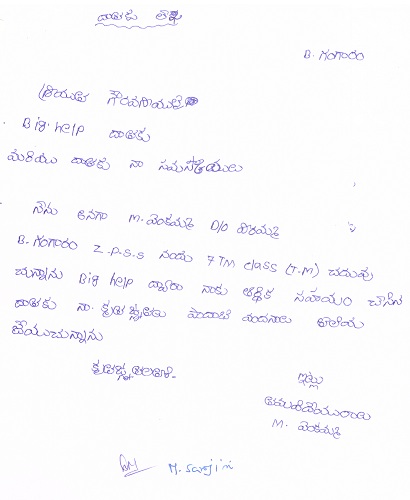 దాతకు లేఖ
B. గంగారం
శ్రీయుత గౌరవనీయులైన
Big. help దాతకు
మరియు దాతకు నా నమస్కారములు
నేను అనగా M. వెంకమ్మ D/O వీరయ్య
B. గంగారం Z.P.S.S నందు 7TM class (T.M) చదువు
చున్నాను Big help ద్వారా నాకు ఆర్థిక సహాయం చేసిన
దాతకు నా. కృతజ్ఞతలు వందనాలు తెలియ
జేయుచున్నాను
కృతజ్ఞతలతో.
ఇట్లు
M. వెంకమ్మ
M. Swojini